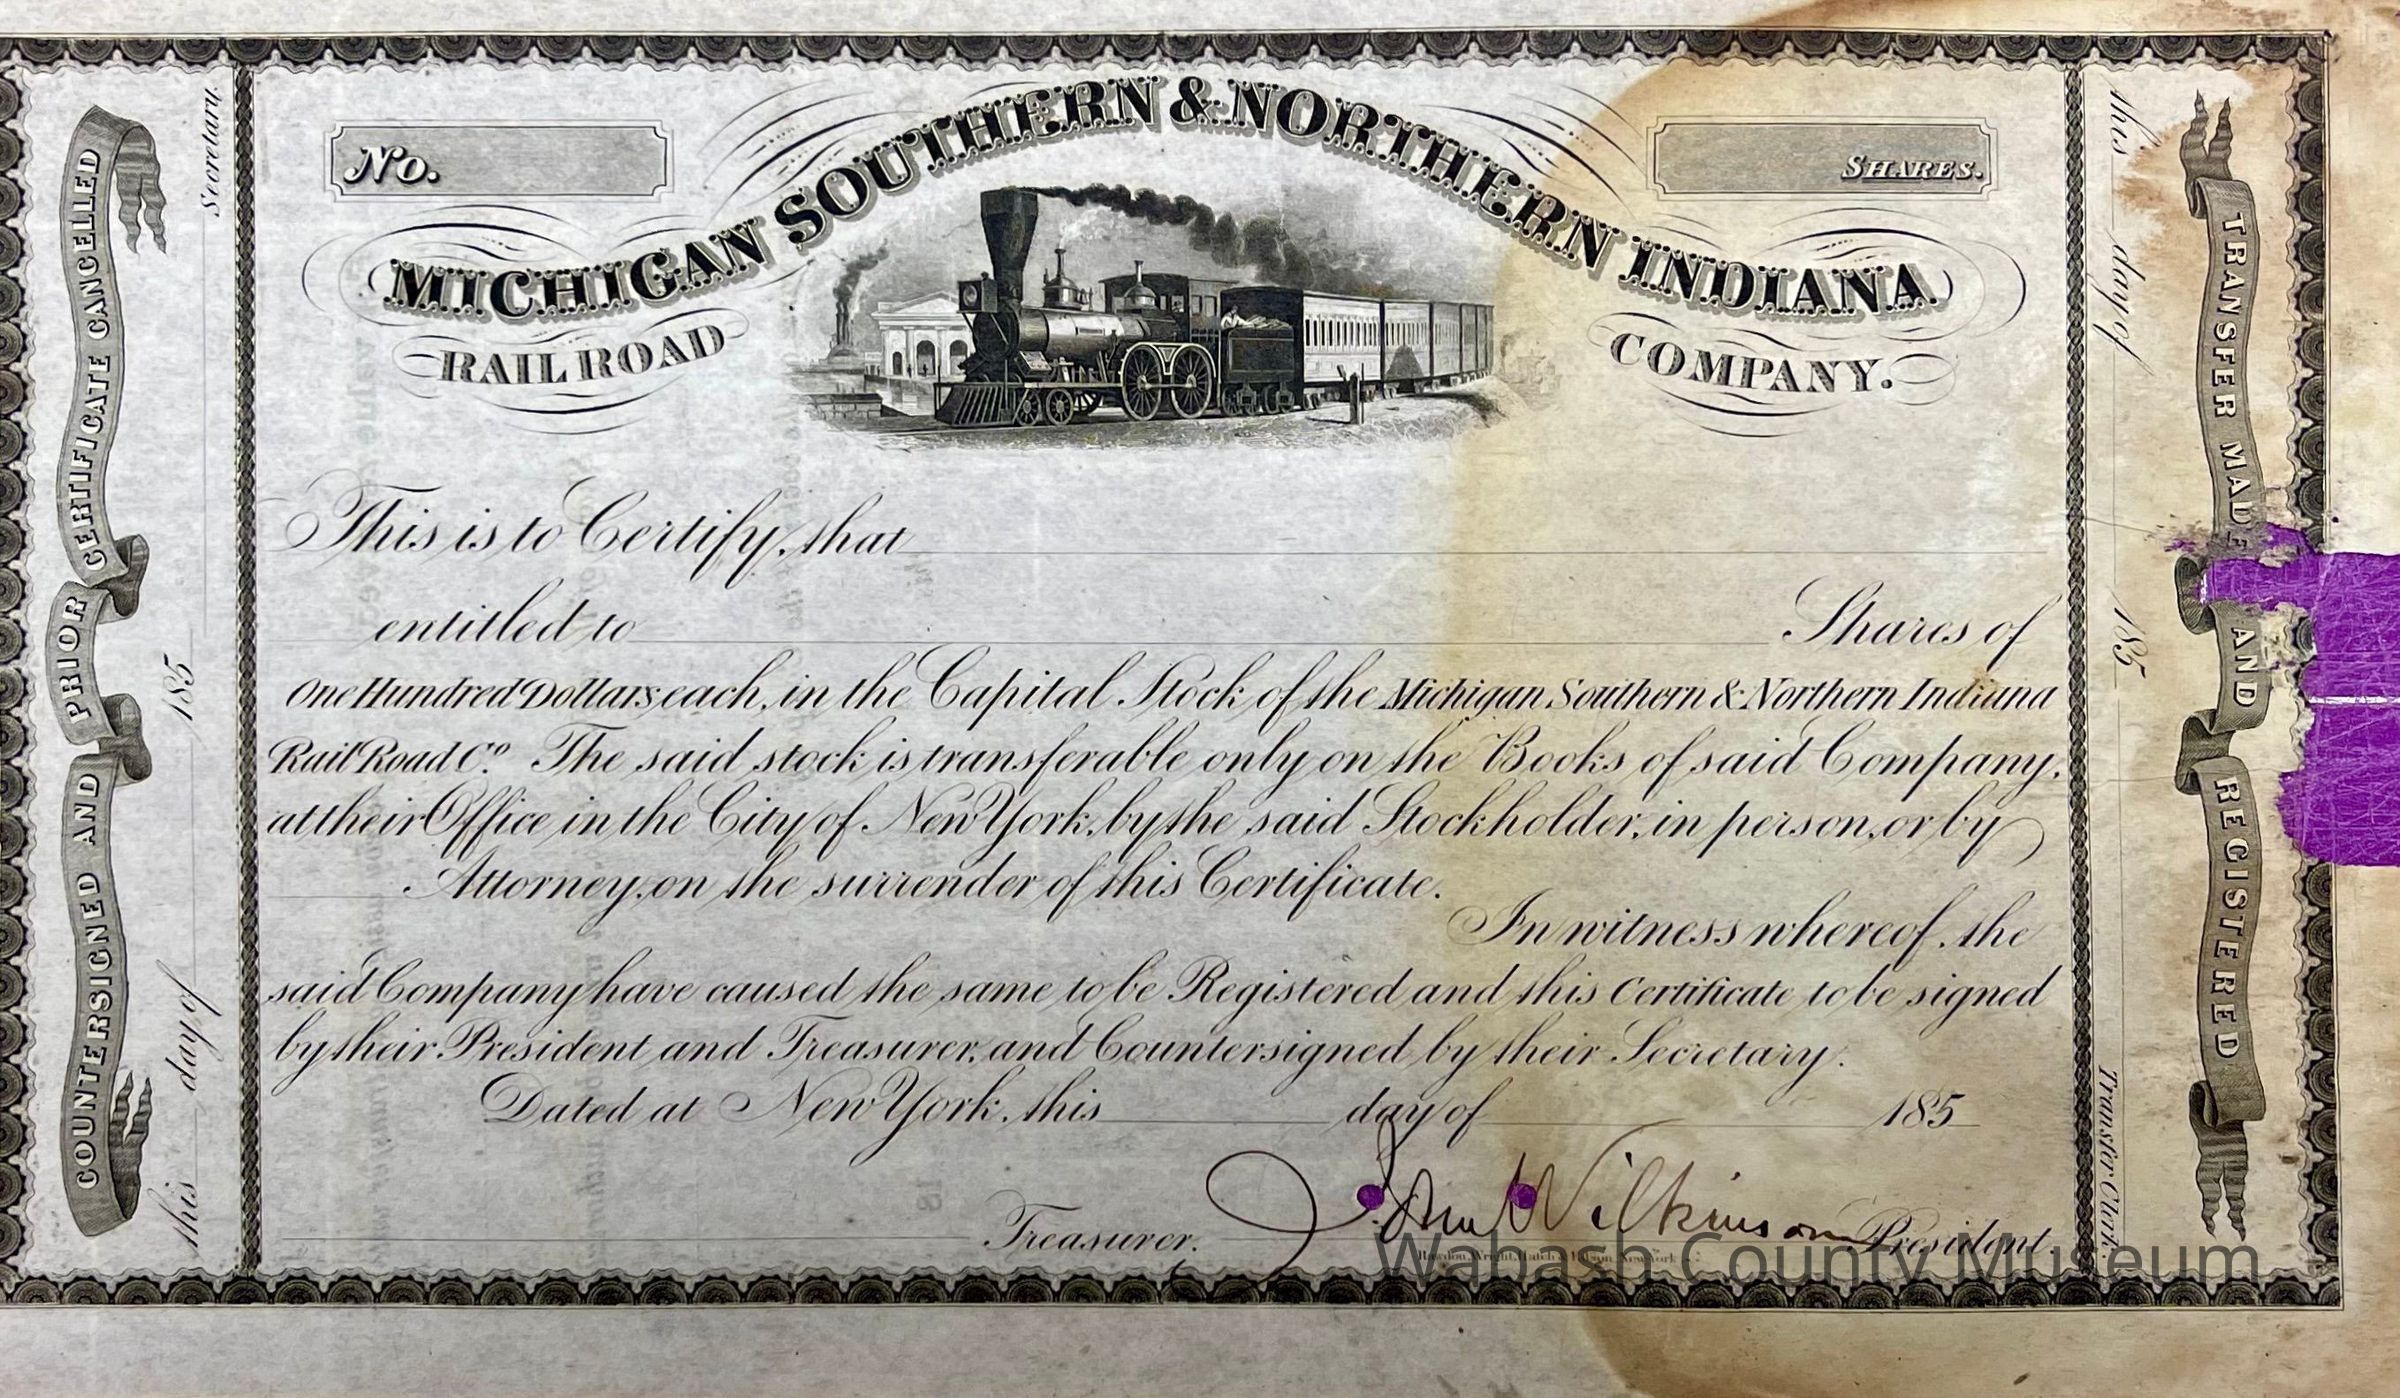 No.
SHARES.
MICHIGAN SOUTHERN & NORTHERN INDIANA
RAIL ROAD COMPANY.
This is to Certify, that
entitled to Shares of
One Hundred Dollars each, in the Capital Stock of the Michigan Southern & Northern Indiana
Rail Road Co. The said stock is transferable only on the Books of said Company,
at their Office in the City of New York, by the said Stockholder, in person, or by
Attorney, on the surrender of this Certificate.
In witness whereof, the
said Company have caused the same to be Registered and this Certificate to be signed
by their President and Treasurer, and Countersigned by their Secretary.
Dated at New York, this day of 185
Treasurer. John Wilkinson President
Rawdon, Wright, Hatch & Edson, New York
COUNTERSIGNED AND PRIOR CERTIFICATE CANCELLED
this day of 185 Secretary.
TRANSFER MADE AND REGISTERED
this day of 185 Transfer Clerk.
Wabash County Museum